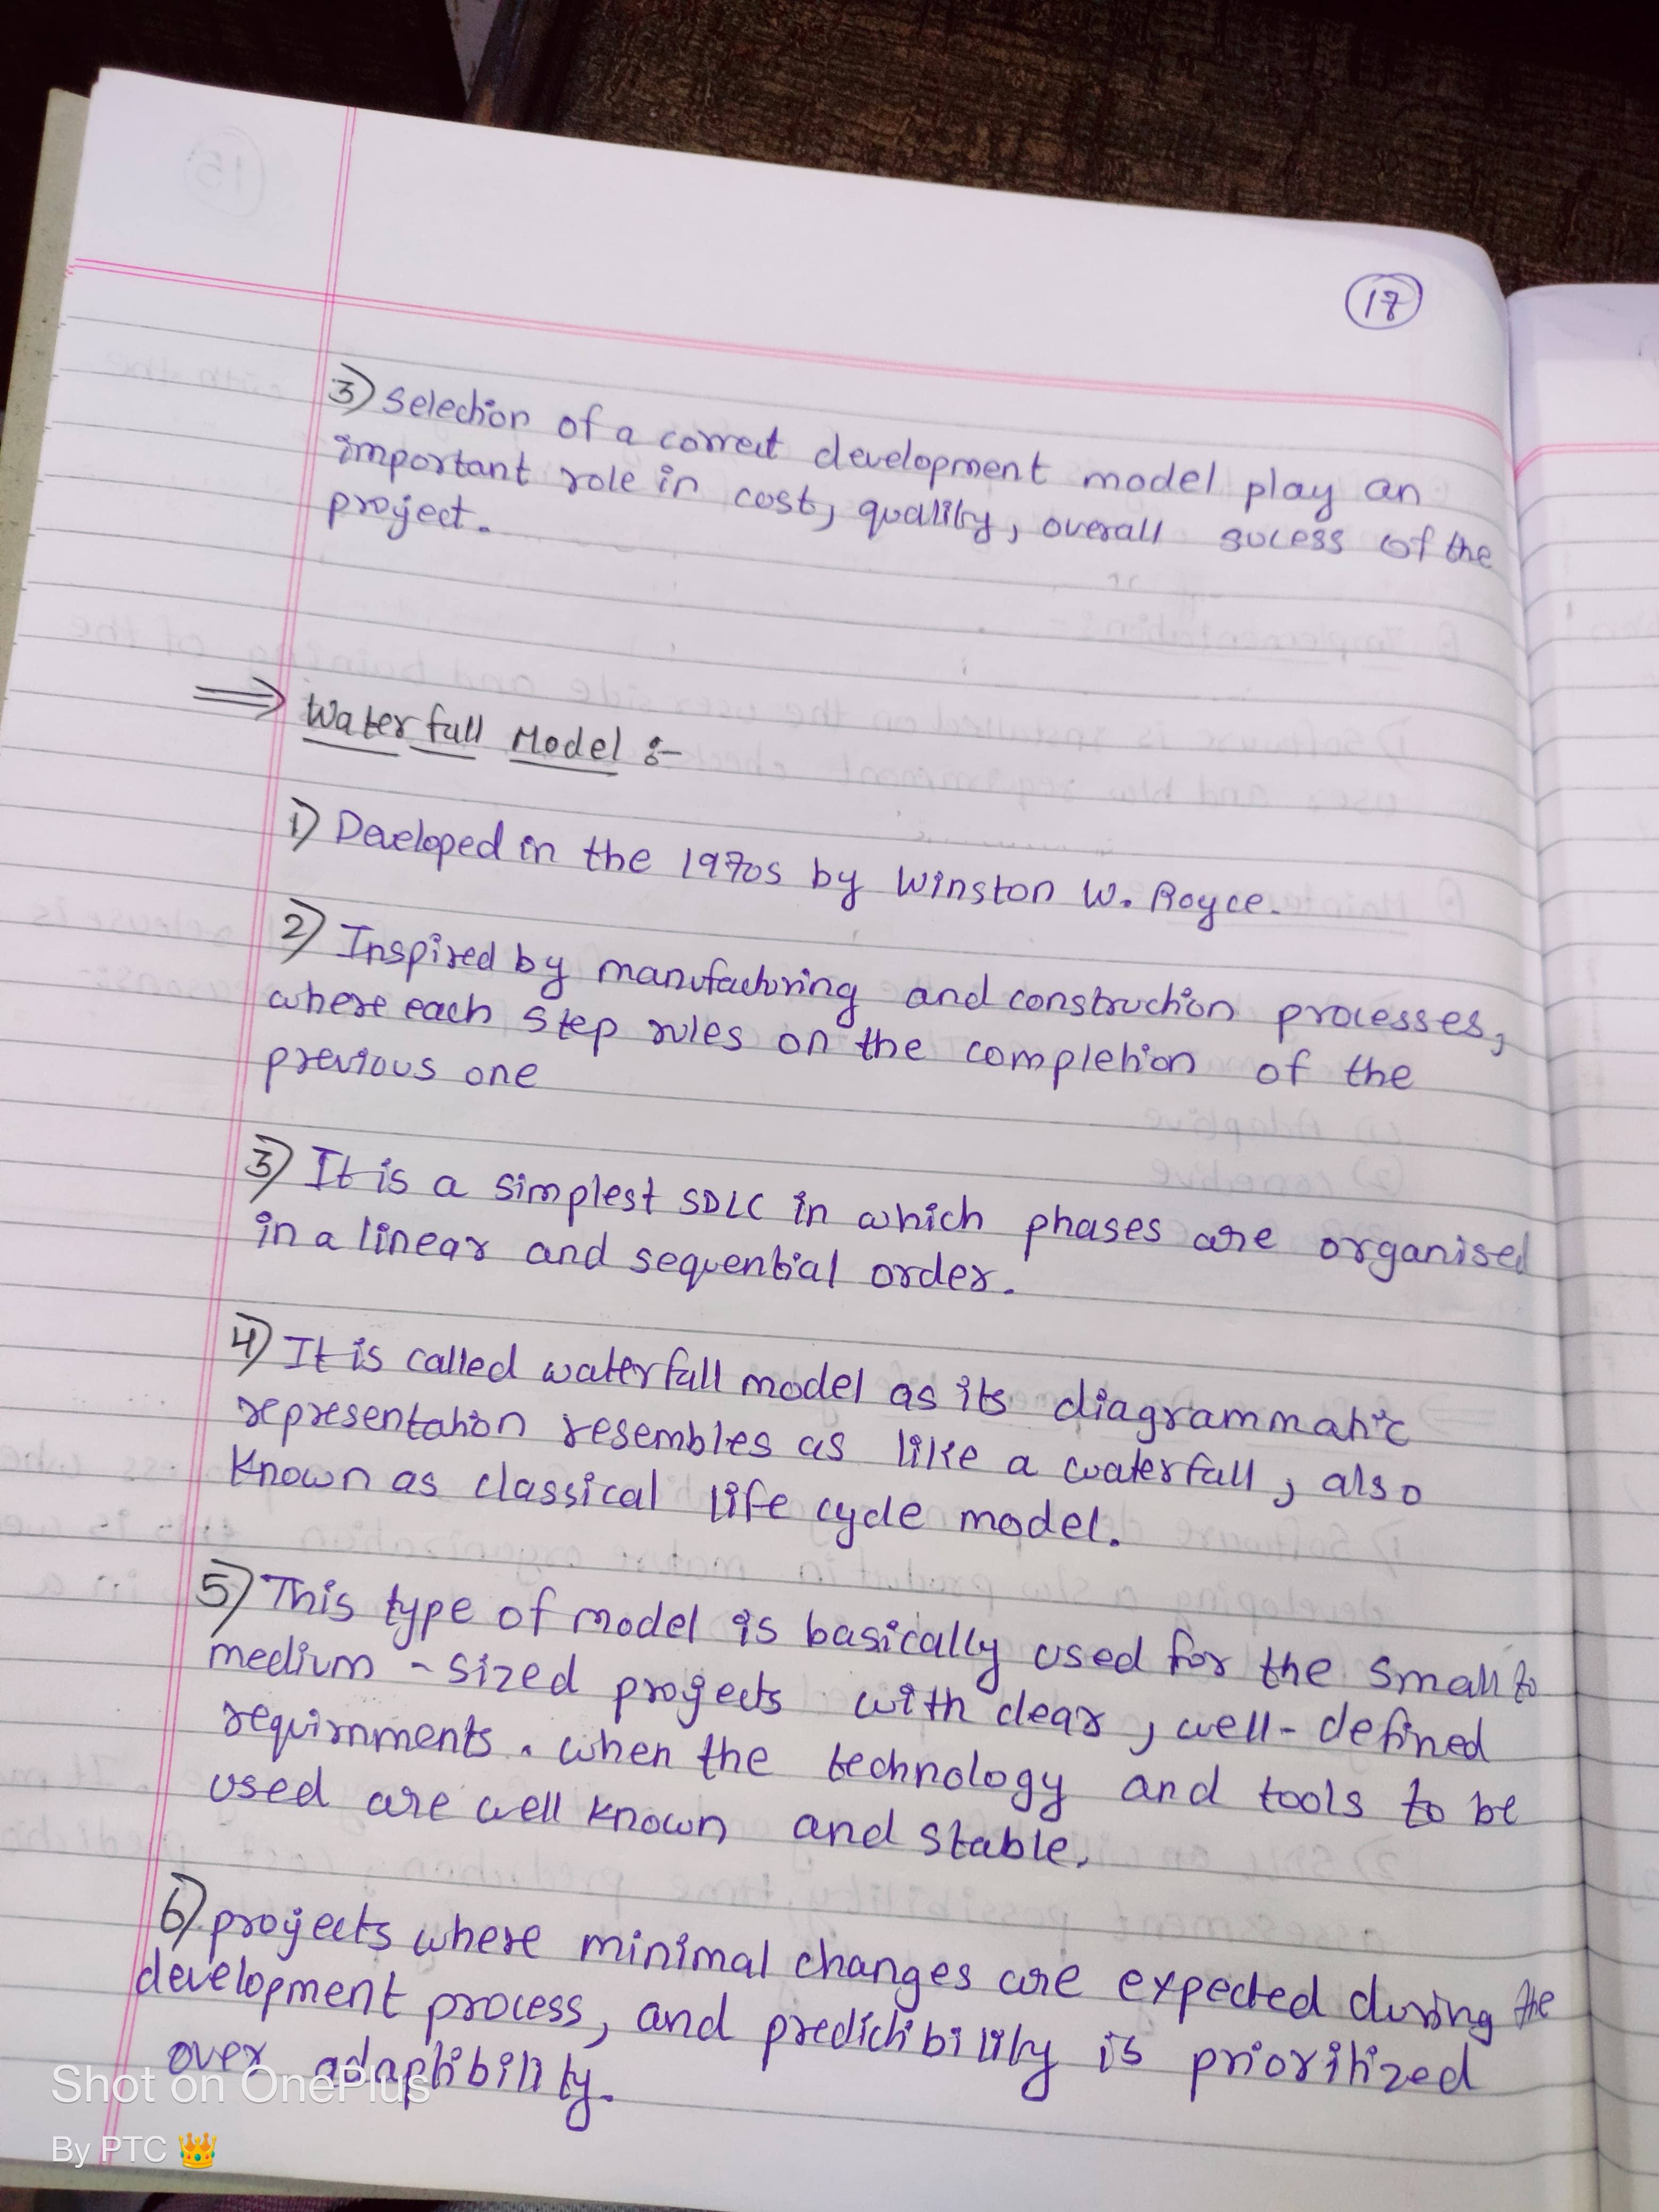 17
3) Selection of a correct development model play an
important role in cost, quality, overall sucess of the
project.
⇒ Waterfall Model :-
1) Developed in the 1970s by Winston W. Royce.
2) Inspired by manufacturing and construction processes,
where each step rules on the completion of the
previous one
3) It is a simplest SDLC in which phases are organised
in a linear and sequential order.
4) It is called waterfall model as its diagrammatic
representation resembles as like a waterfall, also
known as classical life cycle model.
5) This type of model is basically used for the small to
medium - sized projects with clear, well-defined
requirnments. when the technology and tools to be
used are well known and stable.
6) projects where minimal changes are expected during the
development process, and predictibility is prioritized
over adaptibility.
Shot on OnePlus
By PTC 👑